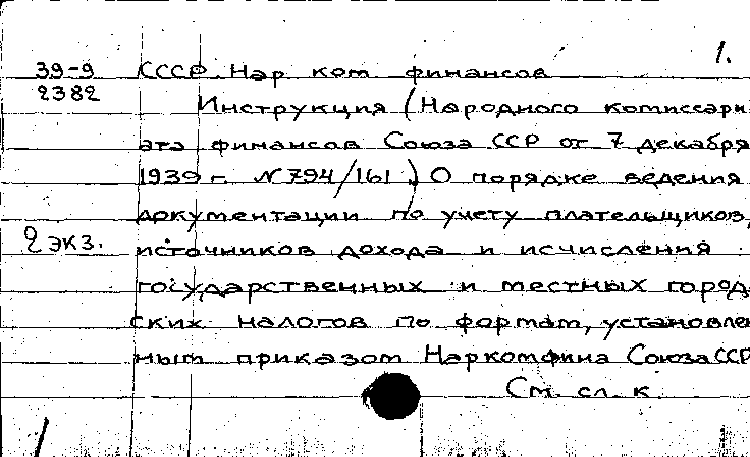 1.
39-9 СССР. Нар. ком. финансов
2382 Инструкция (Народного комиссари-
ата финансов Союза ССР от 7 декабря
1939 г. № 794/161) О порядке ведения
документации по учету плательщиков,
2 экз. источников дохода и исчисления
государственных и местных город-
ских налогов по формам, установлен-
ным приказом Наркомфина Союза ССР
См. сл. к.